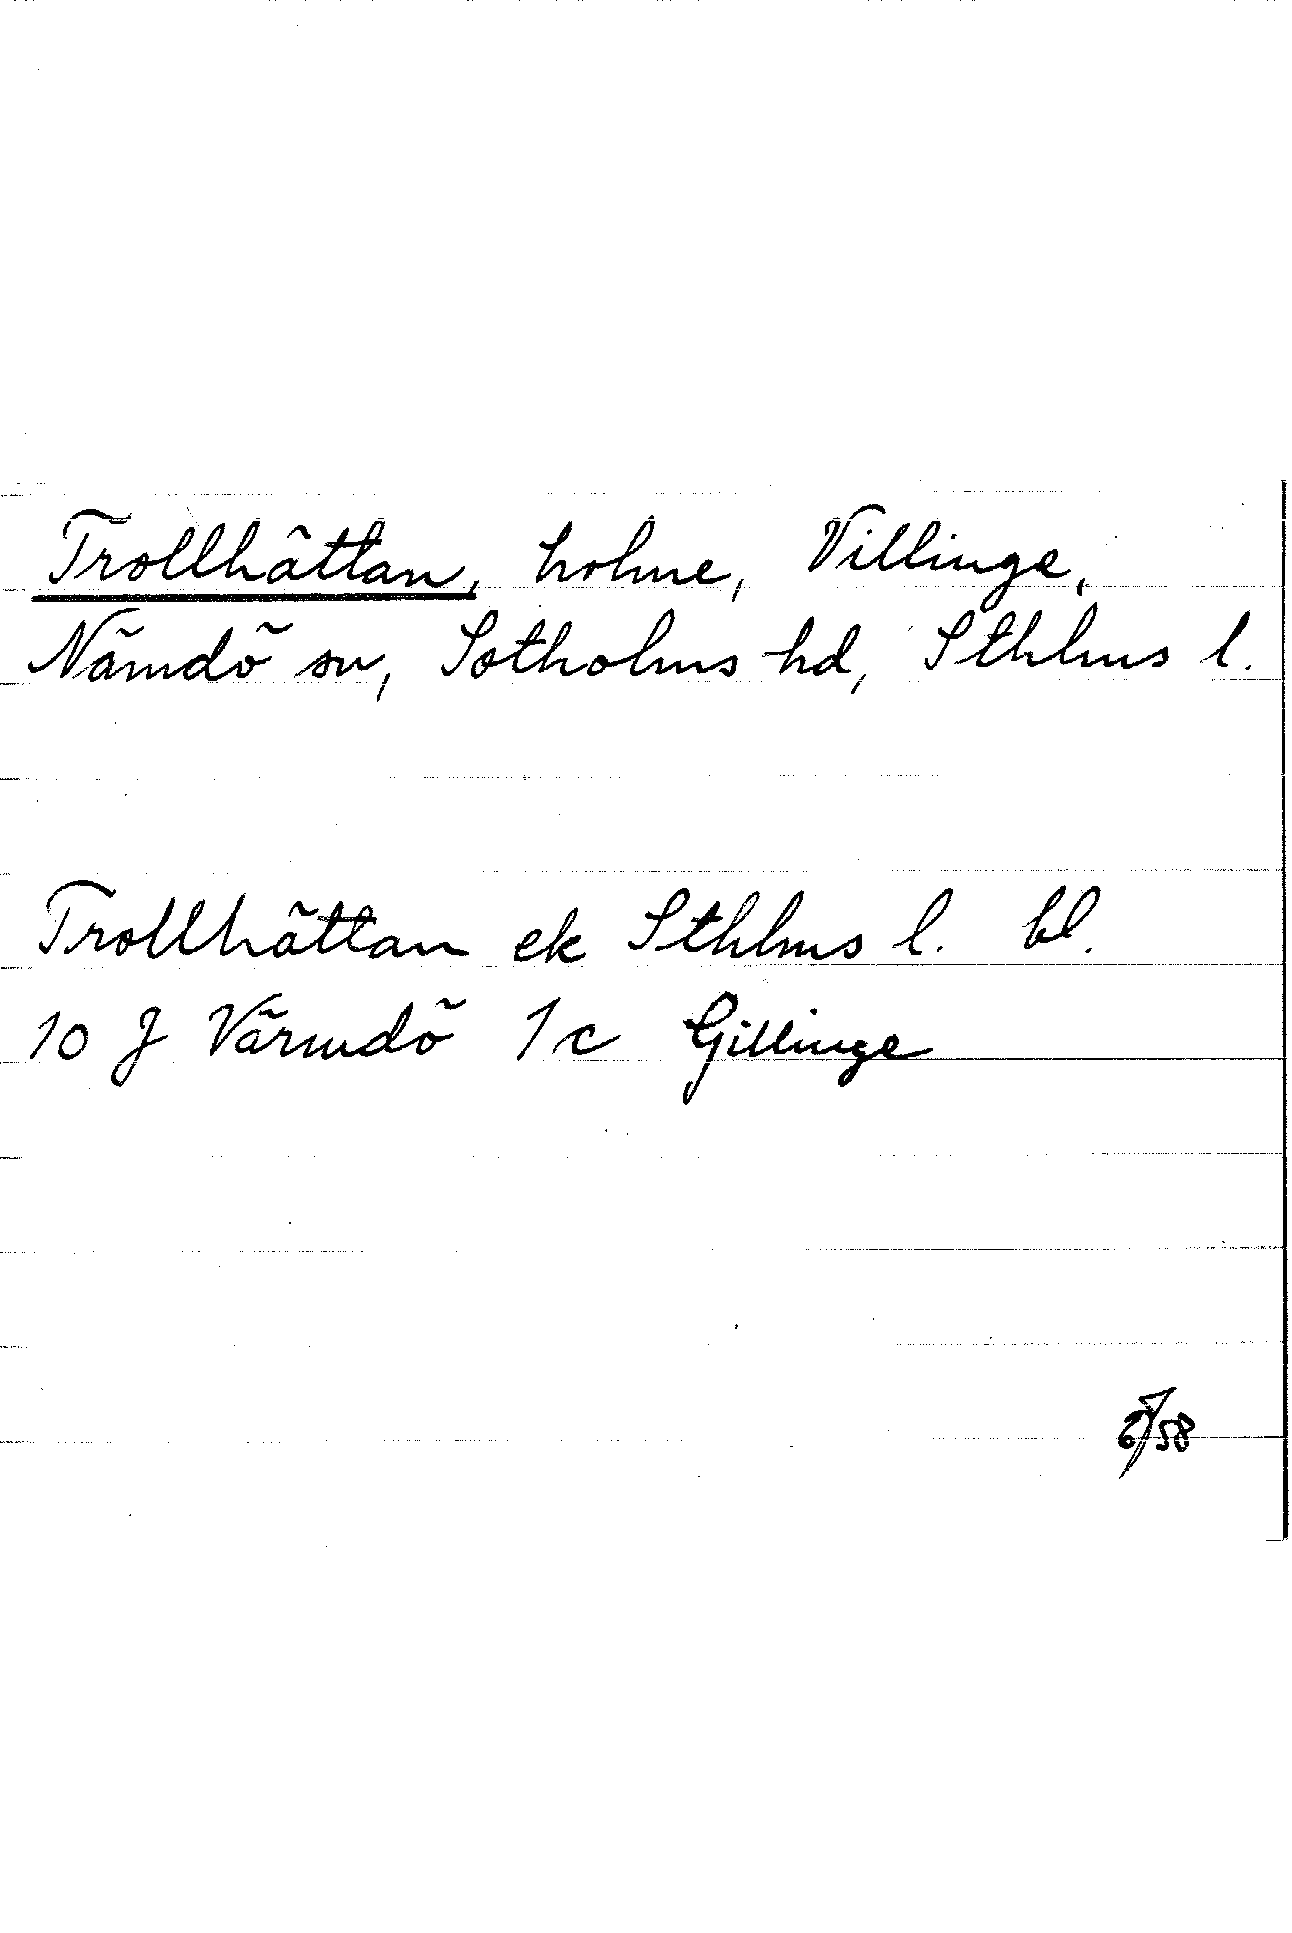 Trollhättan, holme, Villinge,
Nämdö sn, Sotholms hd, Sthlms l.
Trollhättan ek Sthlms l. bl.
10 J Värmdö 1c Gillinge
6/58